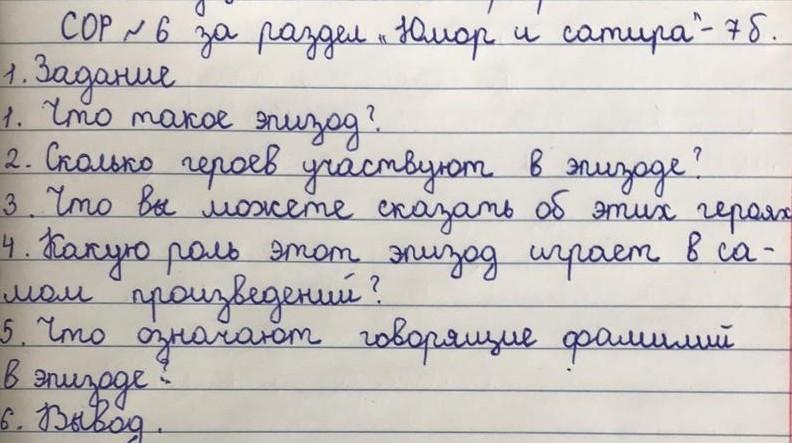 СОР № 6 за раздел „Юмор и сатира" - 7 б.
1. Задание
1. Что такое эпизод?
2. Сколько героев участвуют в эпизоде?
3. Что вы можете сказать об этих героях
4. Какую роль этот эпизод играет в са-
мом произведений?
5. Что означают говорящие фамилий
в эпизоде?
6. Вывод.